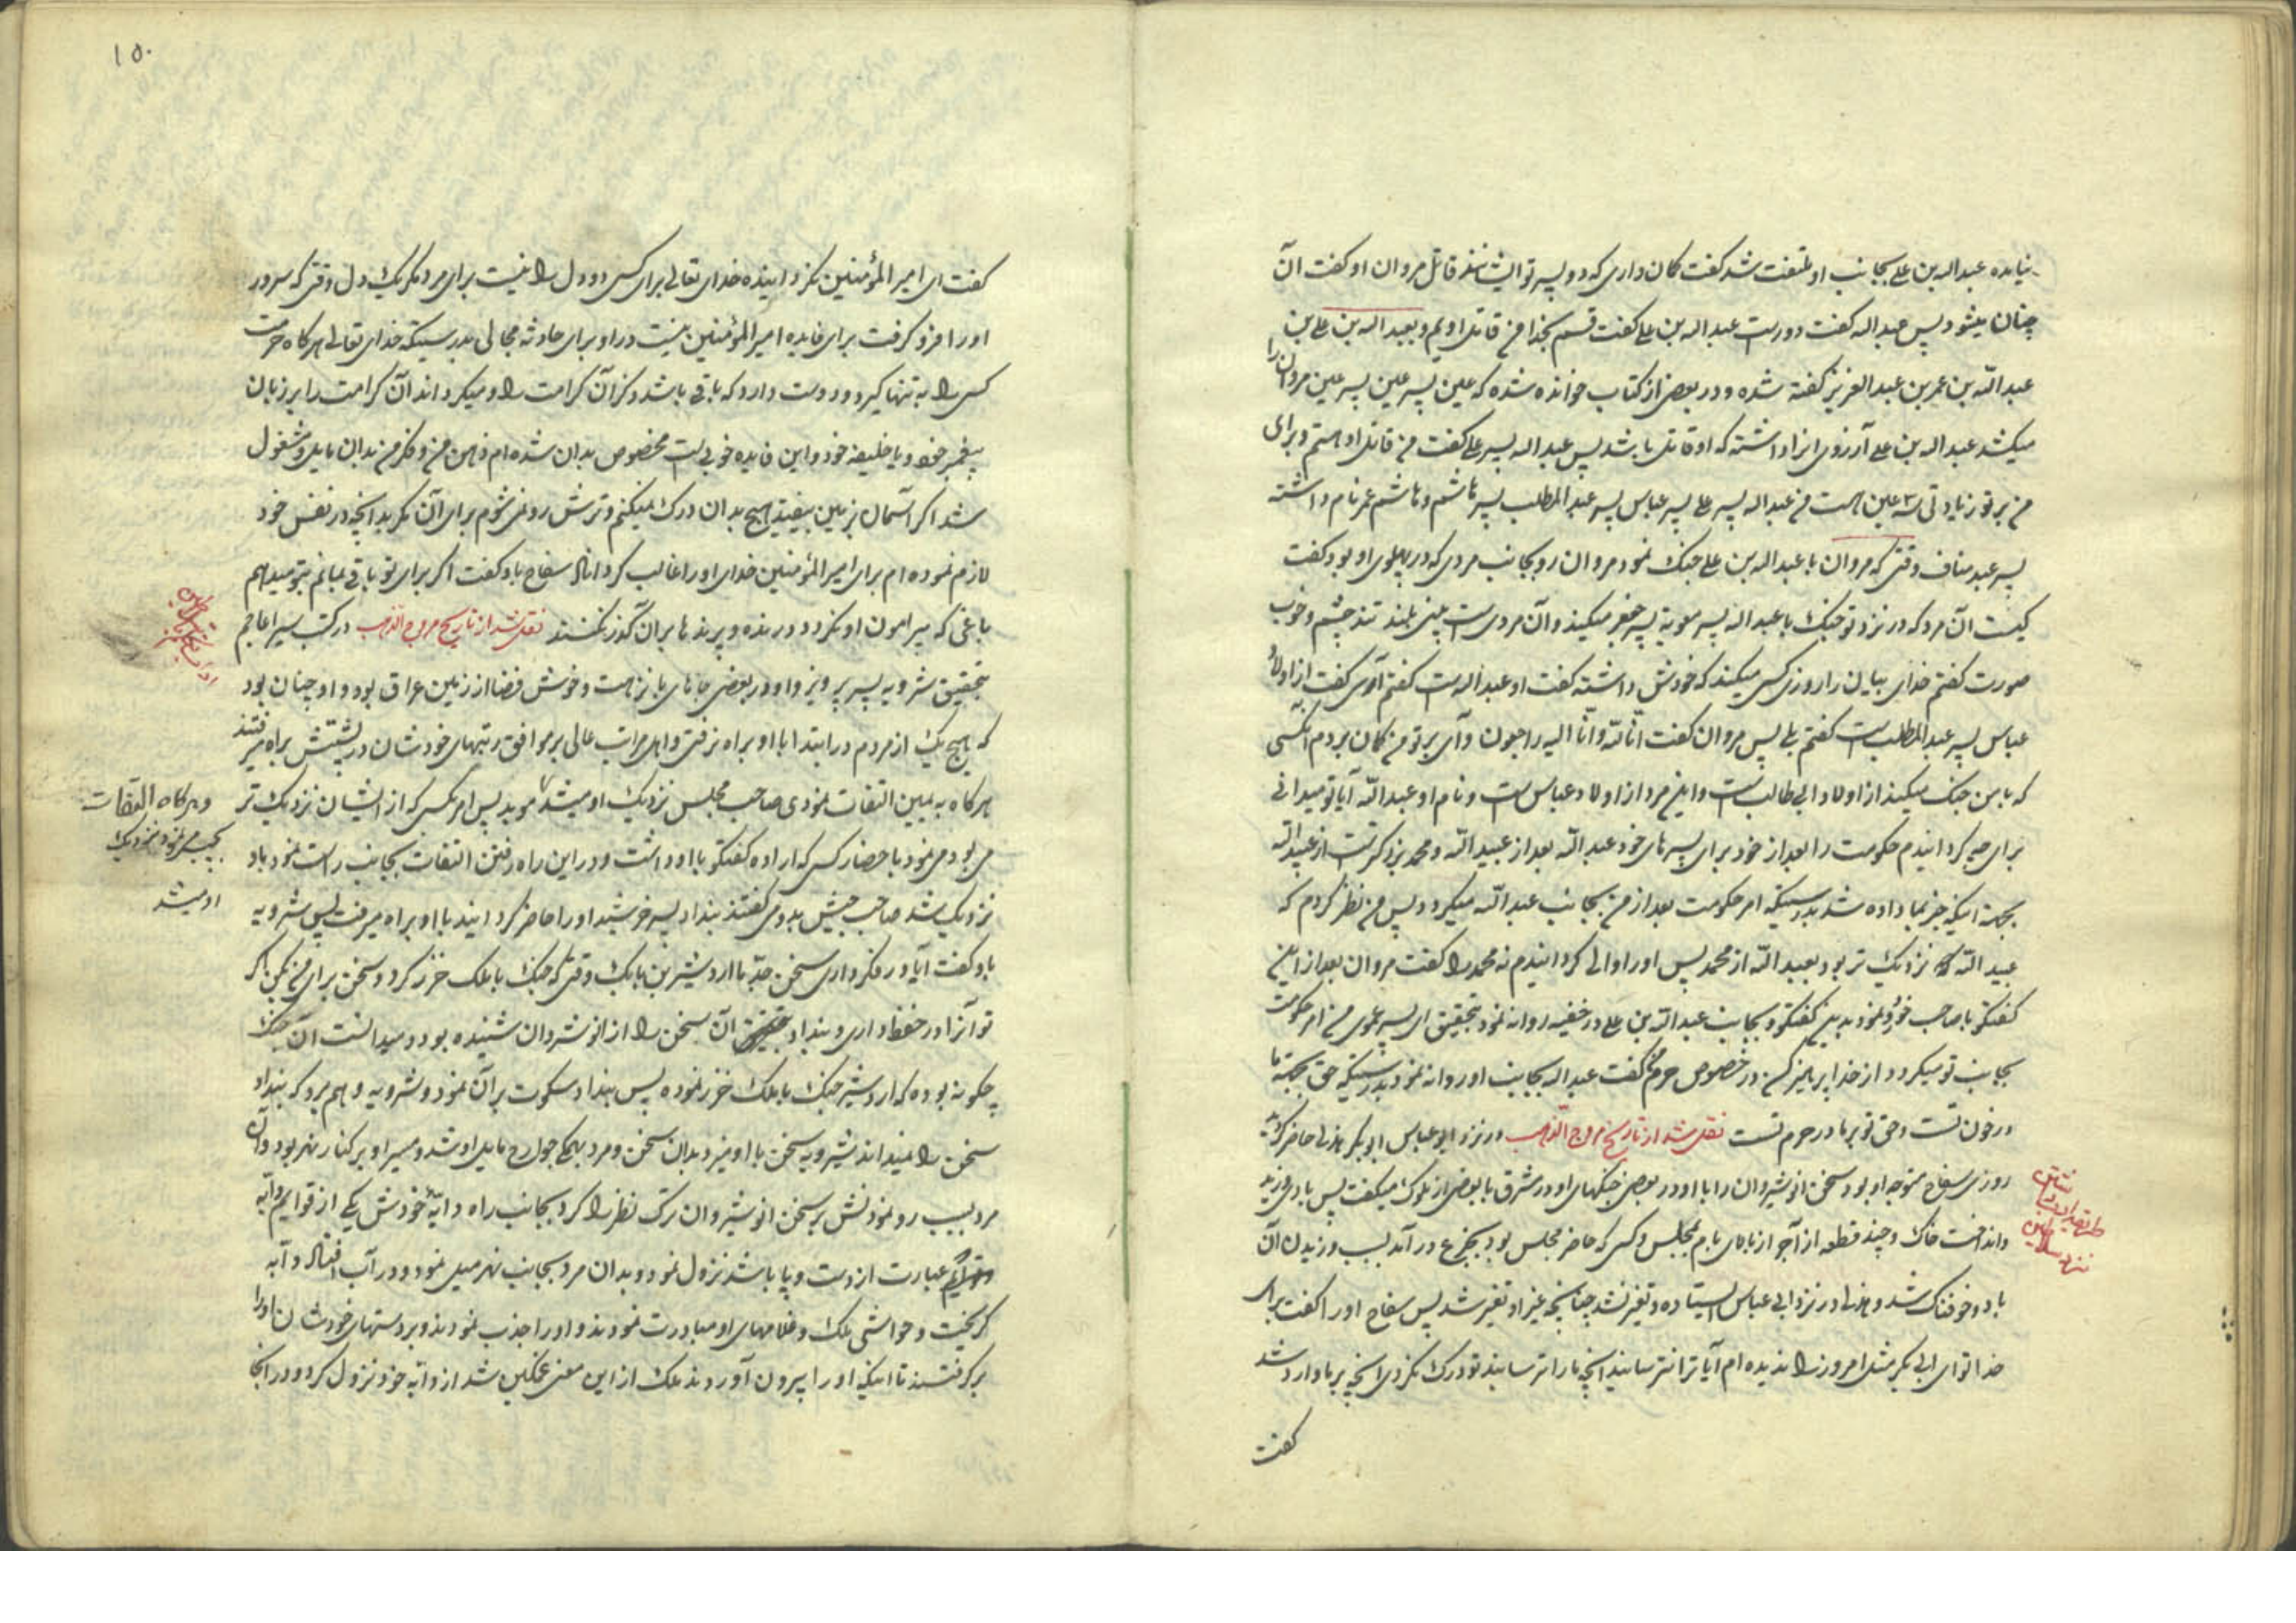 نیامده عبداله بن علی بجانب او ملتفت شد گفت گمان داری که دو پسر تو ایشانند قاتل مروان او گفت آن
چنان میشود پس عبداله گفت دورست عبداله بن علی گفت قسم بخدا من قاتل اویم و بعبداله بن علی بن
عبدالله بن عمر بن عبدالعزیز گفته شده و در بعضی از کتاب خوانده شده که عین پسر عین پسر عین مروان را
میکشد عبداله بن علی آرزوی انرا داشته که او قاتل باشد پس عبداله پسر علی گفت من قاتل او هستم و برای
من بر تو زیادتی سه عین است من عبداله پسر علی پسر عباس پسر عبدالمطلب پسر هاشم و هاشم عمر نام داشته
پسر عبدمناف وقتی که مروان با عبداله بن علی جنک نمود مروان رو بجانب مردی که در پهلوی او بود گفت
کیست آن مرد که در نزد تو جنک با عبداله پسر معویه پسر جعفر میکند و آن مردیست بینی بلند تند چشم و خوب
صورت گفتم خدای بیان را روزی کسی میکند که خودش داشته گفت او عبداله است گفتم آری گفت از اولاد
عباس پسر عبدالمطلب است گفتم بلی پس مروان گفت انّا لله و انّا الیه راجعون وای بر تو من گمان بردم انکسی
که با من جنک میکند از اولاد ابی طالبست و این مرد از اولاد عباس است و نام او عبدالله آیا تو میدانی
برای چه گردانیدم حکومت را بعد از خود برای پسرهای خود عبدالله بعد از عبیدالله و محمد بزرگترست از عبیدالله
بجهت اینکه خبر بما داده شد بدرستیکه امر حکومت بعد از من بجانب عبدالله میگردد پس من نظر کردم که
عبیدالله نزدیک تر بود بعبدالله از محمد پس او را والی گردانیدم نه محمد را گفت مروان بعد از این
گفتگو با صاحب خود نمود بدین گفتگو و بجانب عبدالله بن علی در خفیه روانه نمود بتحقیق ای پسر عموی من امر حکومت
بجانب تو میگردد از خدا بپرهیز کن در خصوص حرم من گفت عبداله بجانب او روانه نمود بدرستیکه حق بجهة ما
در خون تست و حق تو بر ما در حرم تست نقل شد از تاریخ مروج الذهب در نزد ابو عباس ابوبکر هذلی حاضر گردید
روزی سفاح متوجه او بود سخن انوشیروان را با او در بعضی جنگهای او در مشرق با بعضی از ملوک میگفت پس بادی وزید
و انداخت خاک و چند قطعه از آجر از بالای بام بمجلس و کسی که حاضر مجلس بود بجزع در آمد بسبب وزیدن آن
باد و خوفناک شد و هذلی در نزد ابی عباس ایستاده و تغیر نشد چنانچه غیر او تغیر شد پس سفاح او را گفت برای
خدا تو ای ابی بکر مثل امروز را ندیده ام آیا ترا نترسانید انچه ما را ترسانید تو درک نکردی انچه بر ما وارد شد
گفت
۱۵۰
گفت ای امیر المؤمنین نگردانیده خدای تعالی برای کسی دو دل را نیست برای مرد مگر یک دل وقتی که سرور
او را فرو گرفت برای فایده امیر المؤمنین نیست در او برای حادثه مجالی بدرستیکه خدای تعالی هر گاه حرمت
کسی را به تنها گیرد و دوست دارد که باقی باشد ذکر آن کرامت را و میگرداند آن کرامت را بر زبان
پیغمبر خود و یا خلیفه خود و این فایده خوبیست مخصوص بدان شده ام ذهن من و فکر من بدان مایل و مشغول
شد اگر آسمان بزمین بیفتد هیچ بدان درک نمیکنم و ترش رو نمیشوم برای آن مگر بدانچه در نفس خود
لازم نموده ام برای امیر المؤمنین خدای او را غالب گرداناد سفاح باو گفت اگر برای تو باقی بمانم بتو میدهم
باغی که پیرامون او نگردد درنده و پرندها بر آن گذر نکنند نقل شد از تاریخ مروج الذهب در کتب سیر اعاجم
بتحقیق شرویه پسر پرویز و او در بعضی جاهای با نزهت و خوش فضا از زمین عراق بود و او چنان بود
که هیچ یک از مردم در ابتدا با او براه نرفتی و اهل مراتب عالی بر موافق رتبهای خودشان در پشتش براه میرفتند
هر گاه به یمین التفات نمودی صاحب مجلس نزدیک او میشد موبد پس امر بکسی که از ایشان نزدیک تر
و هر گاه التفات
بچپ مینمود نزدیک
او میشد
می بود می نمود باحضار کسی که اراده گفتگو با او داشت و در این راه رفتن التفات بجانب راست نمود باو
نزدیک شد صاحب جیش بدو می گفتند بنداد پسر خرشید او را حاضر گردانید با او براه میرفت پس شرویه
باو گفت آیا در فکر داری سخن جدّ ما اردشیر بن بابک وقتی که جنک با ملک خزر کرد و سخن برای من بکن اگر
تو آنرا در حفظ داری و بنداد آن سخن را از انوشروان شنیده بود و میدانست آن جنک
چگونه بوده که اردشیر جنک با ملک خزر نموده پس بنداد سکوت بر آن نمود و شرویه وهم برد که بنداد
سخن را نمیداند شیرویه سخن با او میزد بدان سخن و مرد بهمگی جوارح مایل او شد و مسیر او بر کنار نهر بود و آن
مرد بسبب رو نمودنش بر سخن انوشیروان ترک نظر را کرد بجانب راه دابّه خودش یکی از قوایم دابّه
عبارت از دست و پا باشد نزول نمود و بدان مرد بجانب نهر میل نمود و در آب افتاد و دابّه
گریخت و حواشی ملک و غلامهای او مبادرت نمودند و او را جذب نمودند و بر دستهای خودشان او را
بر گرفتند تا اینکه او را بیرون آوردند ملک از این معنی غمگین شد از دابّه خود نزول کرد و در انجا